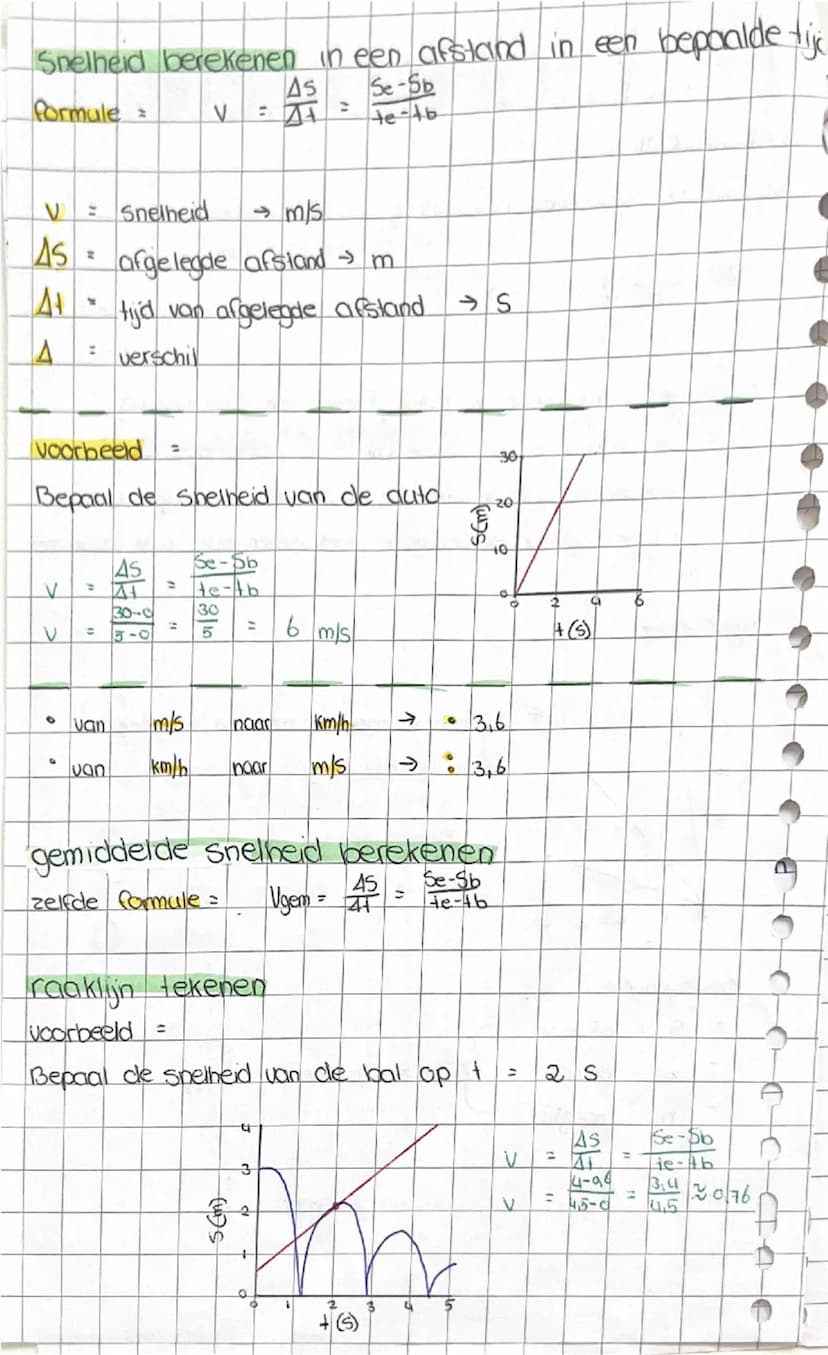 Snelheid berekenen in een afstand in een bepaalde tij
formule = v = Δs/Δt = Se-Sb/te-tb
v = snelheid → m/s
Δs = afgelegde afstand → m
Δt = tijd van afgelegde afstand → s
Δ = verschil
voorbeeld =
Bepaal de snelheid van de auto
v = Δs/Δt = Se-Sb/te-tb
v = 30-0/5-0 = 30/5 = 6 m/s
30
20
10
0
s(m)
0 2 4 6
t(s)
• van m/s naar km/h → • 3,6
• van km/h naar m/s → : 3,6
gemiddelde snelheid berekenen
zelfde formule = Vgem = Δs/Δt = Se-Sb/te-tb
raaklijn tekenen
voorbeeld =
Bepaal de snelheid van de bal op t = 2 s
4
3
2
1
0
s(m)
0 1 2 3 4 5
t(s)
v = Δs/Δt = Se-Sb/te-tb
v = 4-0,6/4,5-0 = 3,4/4,5 ≈ 0,76